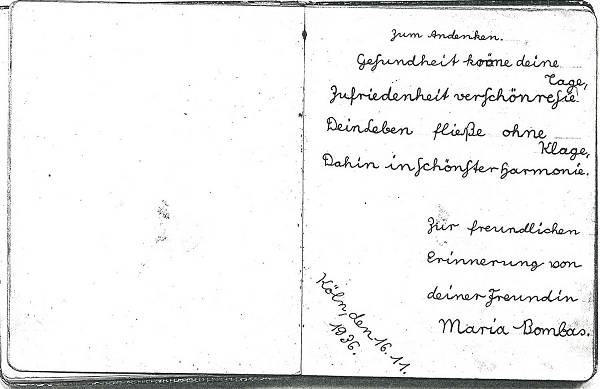 Zum Andenken.
Gesundheit kröne deine
Tage,
Zufriedenheit verschönre sie.
Dein Leben fließe ohne
Klage,
Dahin in schönster Harmonie.
Zur freundlichen
Erinnerung von
deiner Freundin
Maria Bombas.
Köln, den 16. 11.
1936.